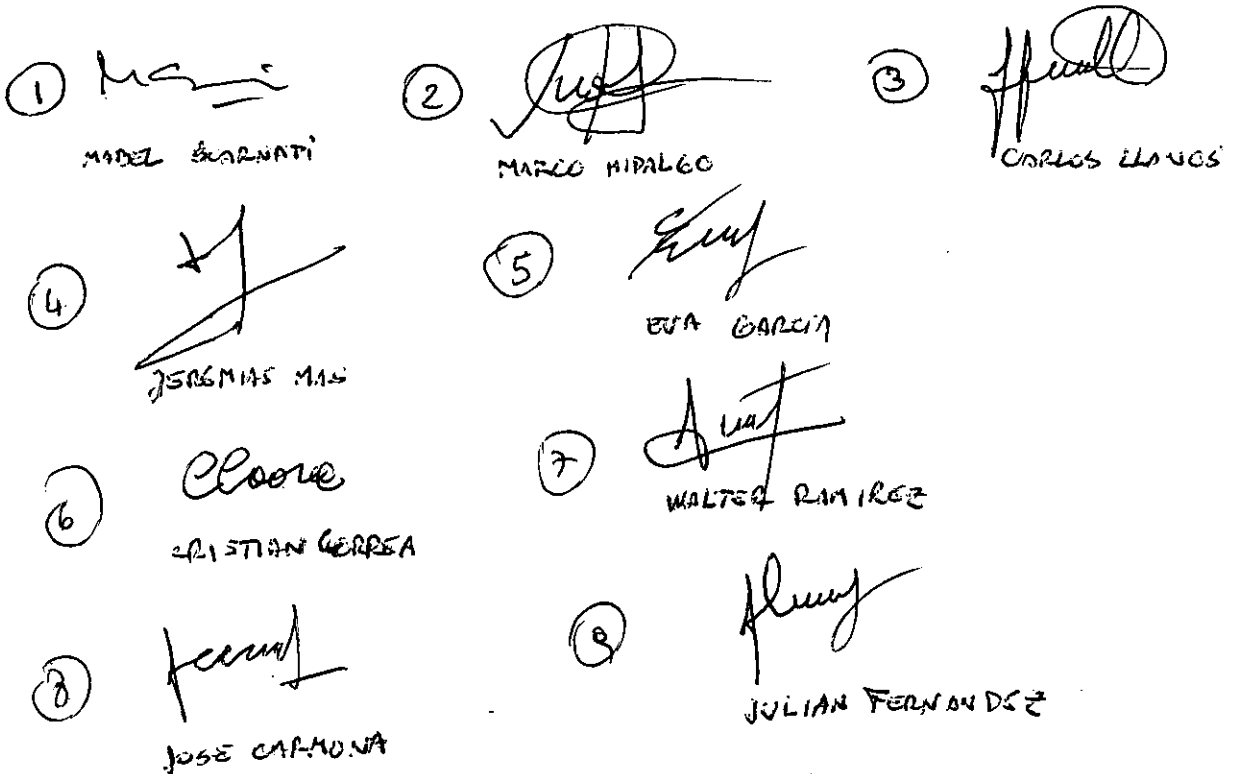 1 2 3
MABEL SCARNATI MARCO HIDALGO CARLOS LLANOS
4 5
JEREMIAS MAS EVA GARCIA
6 7
CRISTIAN CORREA WALTER RAMIREZ
8 9
JOSE CARMONA JULIAN FERNANDEZ